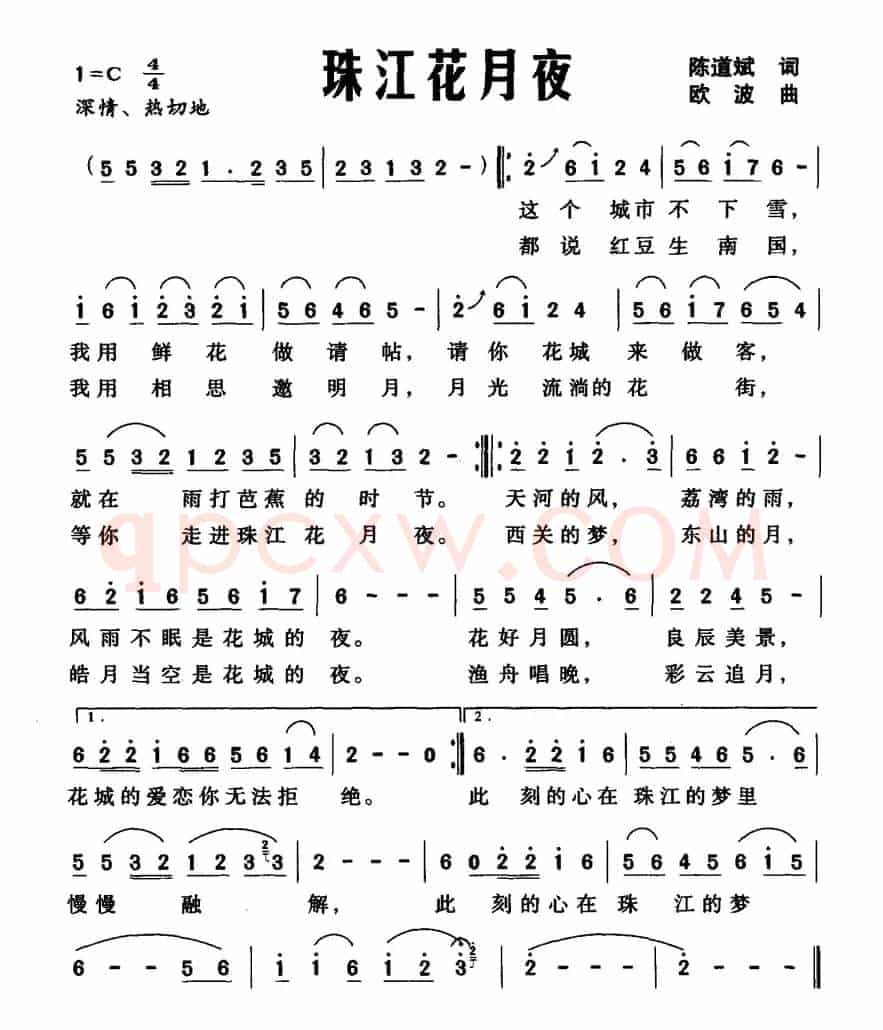 珠江花月夜
1=C 4/4
深情、热切地
陈道斌 词
欧 波 曲
(5 5 3 2 1 . 2 3 5 | 2 3 1 3 2 - ) ‖: 2 6 1 2 4 | 5 6 1 7 6 - |
这个 城市不 下 雪,
都说 红豆生 南 国,
1 6 1 2 3 2 1 | 5 6 4 6 5 - | 2 6 1 2 4 | 5 6 1 7 6 5 4 |
我用 鲜 花 做 请 帖, 请你 花城 来 做 客,
我用 相 思 邀 明 月, 月光 流淌的 花 街,
5 5 3 2 1 2 3 5 | 3 2 1 3 2 - :‖: 2 2 1 2 . 3 | 6 6 1 2 - |
就在 雨打芭蕉 的 时 节。 天河的风, 荔湾的雨,
等你 走进珠江 花 月 夜。 西关的梦, 东山的月,
6 2 1 6 5 6 1 7 | 6 - - - | 5 5 4 5 . 6 | 2 2 4 5 - |
风雨不眠是花城的 夜。 花好月圆, 良辰美景,
皓月当空是花城的 夜。 渔舟唱晚, 彩云追月,
1. 2.
6 2 2 1 6 6 5 6 1 4 | 2 - - 0 :‖ 6 . 2 2 1 6 | 5 5 4 6 5 . 5 |
花城的爱恋你无法拒 绝。 此 刻的心在 珠江的梦里
5 5 3 2 1 2 3 2 3 | 2 - - - | 6 0 2 2 1 6 | 5 6 4 5 6 1 5 |
慢慢 融 解, 此 刻的心在 珠 江的梦
6 - - 5 6 | 1 1 6 1 2 3 2 | 2 - - - | 2 - - - ‖
qpcxw.COM